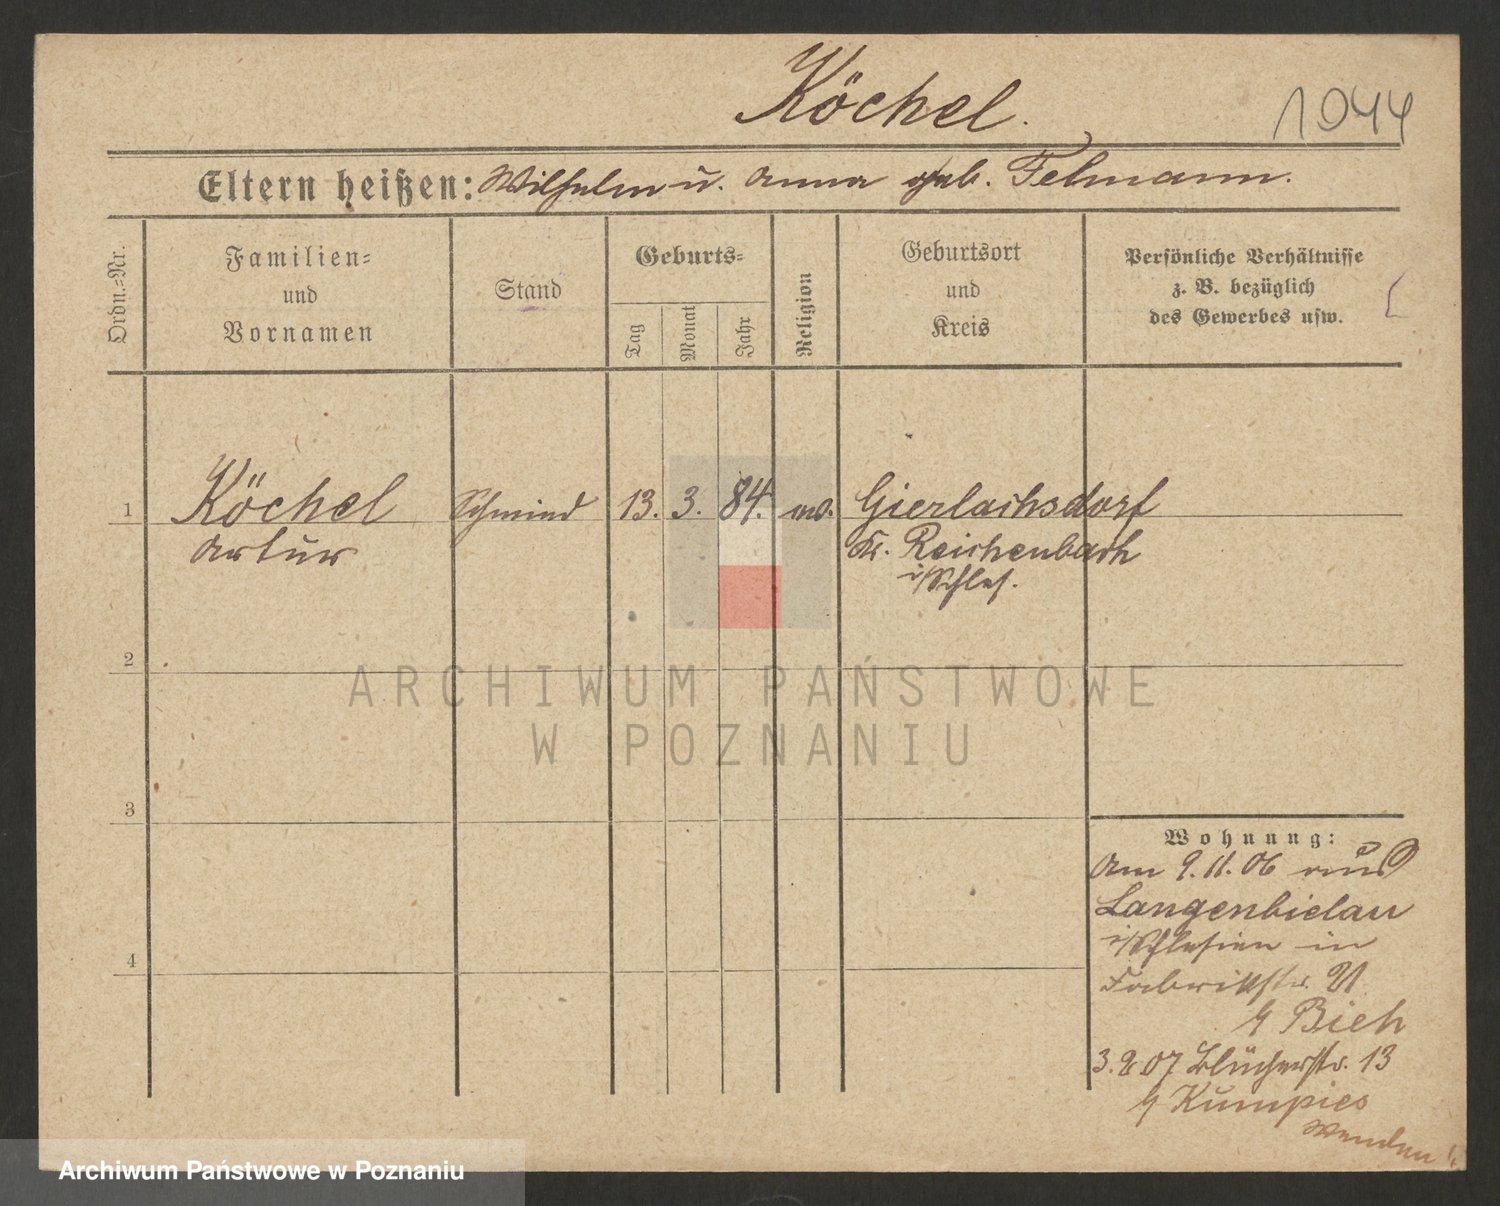 Köchel.
1044
Eltern heißen: Wilhelm u. Anna geb. Felmann.
Ordn.-Nr.
Familien-
und
Vornamen
Stand
Geburts-
Tag
Monat
Jahr
Religion
Geburtsort
und
Kreis
Persönliche Verhältnisse
z. B. bezüglich
des Gewerbes usw.
1 Köchel Schmied 13. 3. 84. ev. Gierlachsdorf
Artur Kr. Reichenbach
i/Schles.
2
3
4
Wohnung:
Am 9.11.06 aus
Langenbielau
i/Schlesien in
Fabrikstr. 21
b/ Bieh
3.2.07 Blücherstr. 13
b/ Kumpies
Wenden!
ARCHIWUM PAŃSTWOWE
W POZNANIU
Archiwum Państwowe w Poznaniu